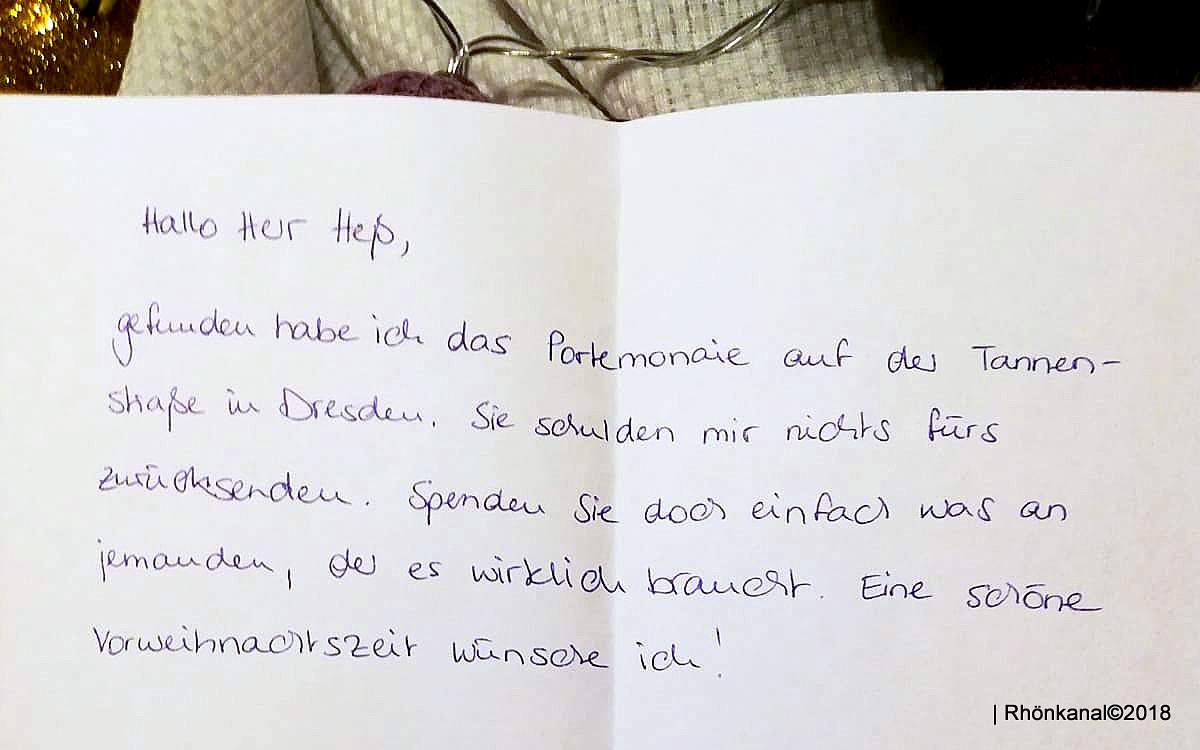 Hallo Herr Heß,
gefunden habe ich das Portemonaie auf der Tannen-
straße in Dresden. Sie schulden mir nichts fürs
zurücksenden. Spenden Sie doch einfach was an
jemanden, der es wirklich braucht. Eine schöne
Vorweihnachtszeit wünsche ich!
| Rhönkanal©2018